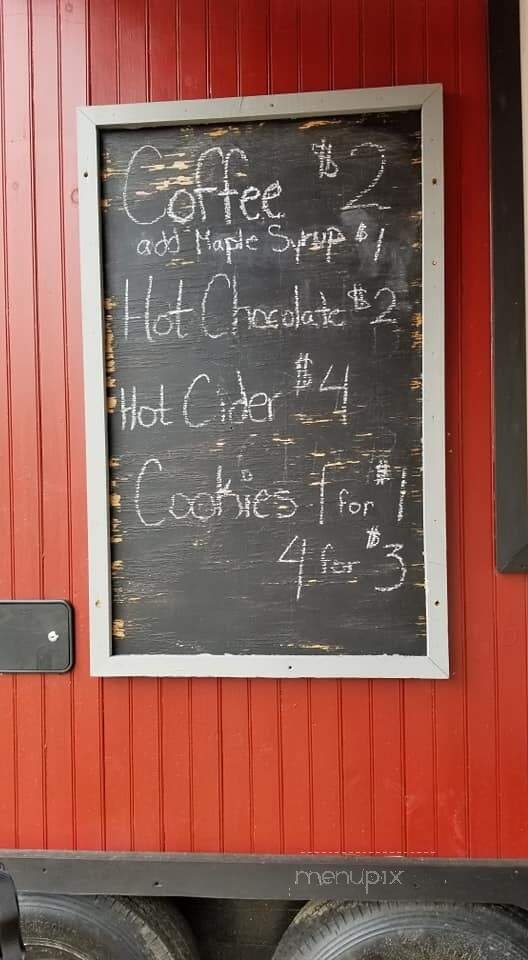 Coffee $2
add Maple Syrup $1
Hot Chocolate $2
Hot Cider $4
Cookies 1 for $1
4 for $3
menupix